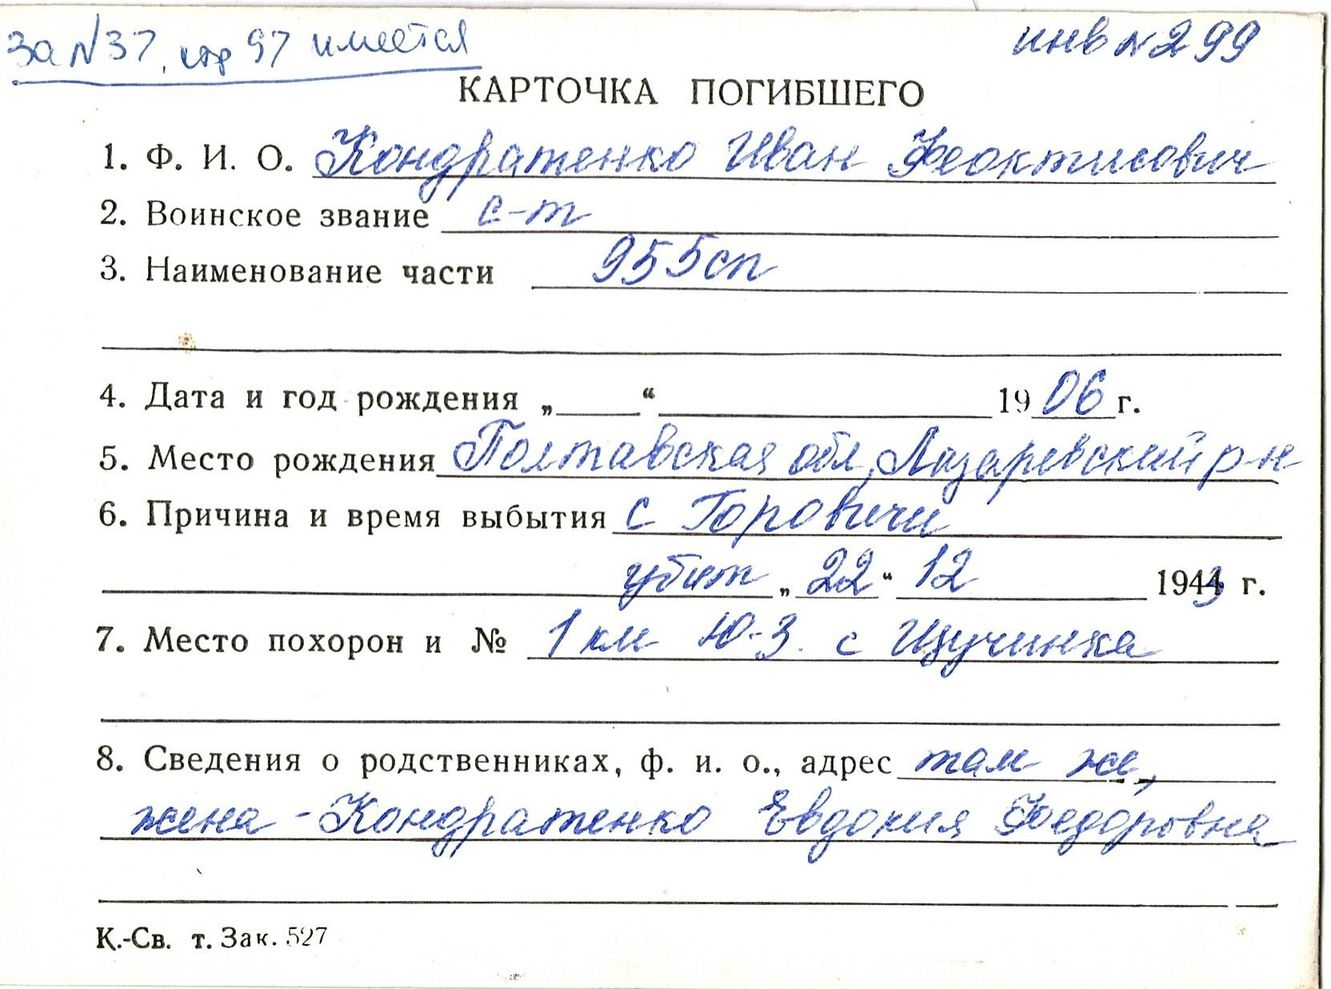 за N37, стр 97 имеется
инв N 299
КАРТОЧКА ПОГИБШЕГО
1. Ф. И. О. Кондратенко Иван Феоктисович
2. Воинское звание с-т
3. Наименование части 955сп
4. Дата и год рождения „ “ 1906 г.
5. Место рождения Полтавская обл, Лазаревский р-н
6. Причина и время выбытия с Горовичи
убит „22“ 12 1943 г.
7. Место похорон и № 1 км Ю-З. с Щучинка
8. Сведения о родственниках, ф. и. о., адрес там же,
жена - Кондратенко Евдокия Федоровна
К.-Св. т. Зак. 527